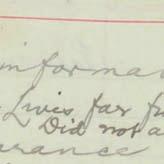 informa
Lives far f
Did not a
arance